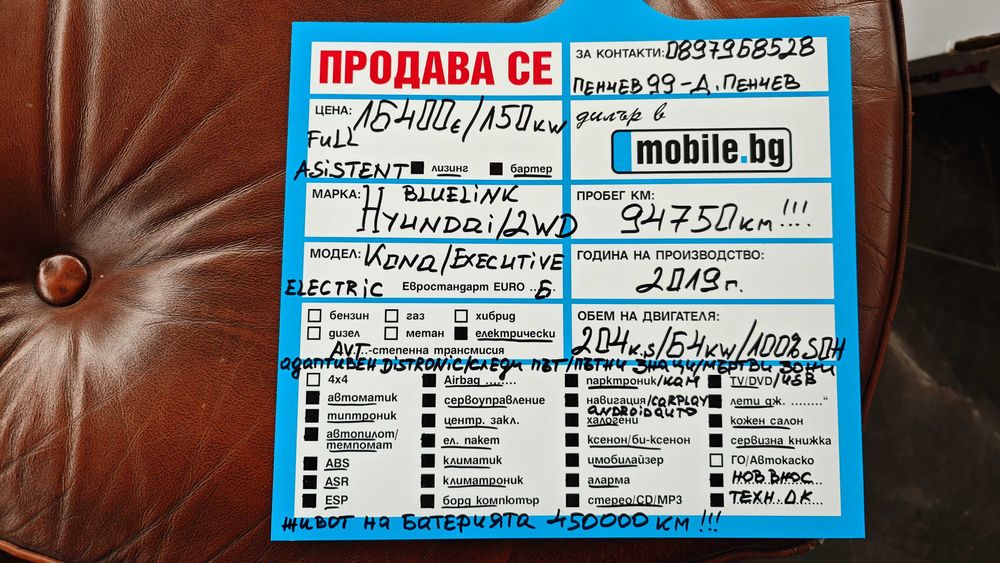 ПРОДАВА СЕ
ЗА КОНТАКТИ: 0897968528
ПЕНЧЕВ 99-Д. ПЕНЧЕВ
ЦЕНА: 16400€/150KW
FULL
ASiSTENT лизинг бартер
дилър в
mobile.bg
МАРКА: BLUELiNK
HYUNDAi/2WD
ПРОБЕГ КМ:
94750км!!!
МОДЕЛ: KONA/EXECUTiVE
ELECTRiC Евростандарт EURO ..6
ГОДИНА НА ПРОИЗВОДСТВО:
2019г.
бензин газ хибрид
дизел метан електрически
AVT.-степенна трансмисия
ОБЕМ НА ДВИГАТЕЛЯ:
204к.s/64kw/100%SOH
адаптивен DiSTRONiC/следи път/пътни знаци/мъртви зони
4x4
автоматик
типтроник
автопилот/
темпомат
ABS
ASR
ESP
Airbag ........
сервоуправление
центр. закл.
ел. пакет
климатик
климатроник
борд компютър
парктроник/КАМ
навигация/CARPLAY
ANDROiDAUTO
халогени
ксенон/би-ксенон
имобилайзер
аларма
стерео/CD/MP3
TV/DVD/USB
лети дж. ........"
кожен салон
сервизна книжка
ГО/Автокаско
НОВ ВНОС
ТЕХН. Д.К
живот на БАТЕРИЯТА 450000 км!!!